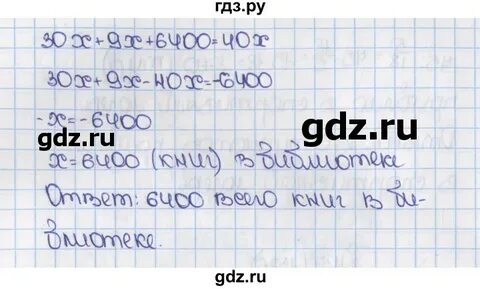 гдз.ру
30x+9x+6400=40x
30x+9x-40x=-6400
-x=-6400
gdz.ru
gdz.ru
x=6400 (книг) в библиотеке
Ответ: 6400 всего книг в би-
блиотеке.
gdz.ru
gdz.ru